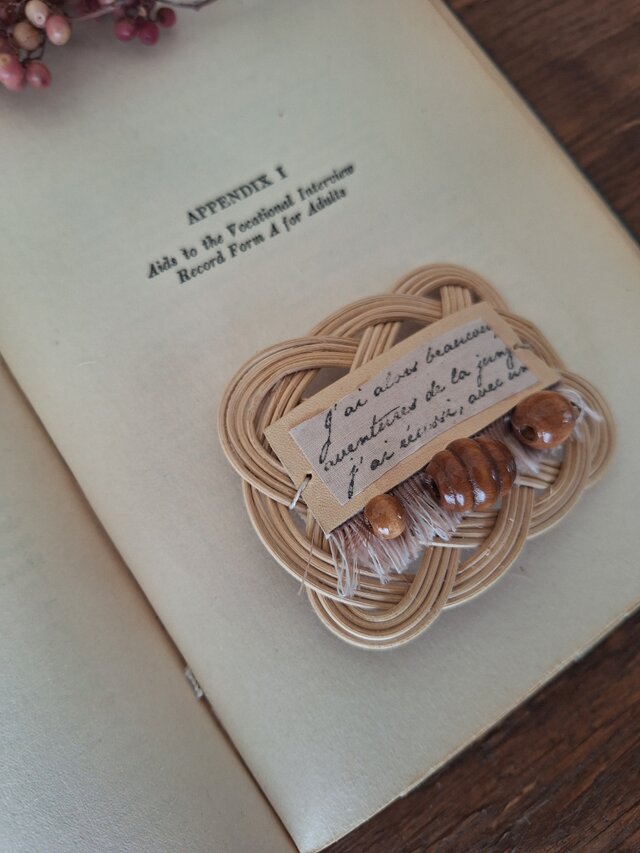 APPENDIX I
Aids to the Vocational Interview
Record Form A for Adults
J'ai alors beaucou
aventures de la jung
j'ai réussi, avec un